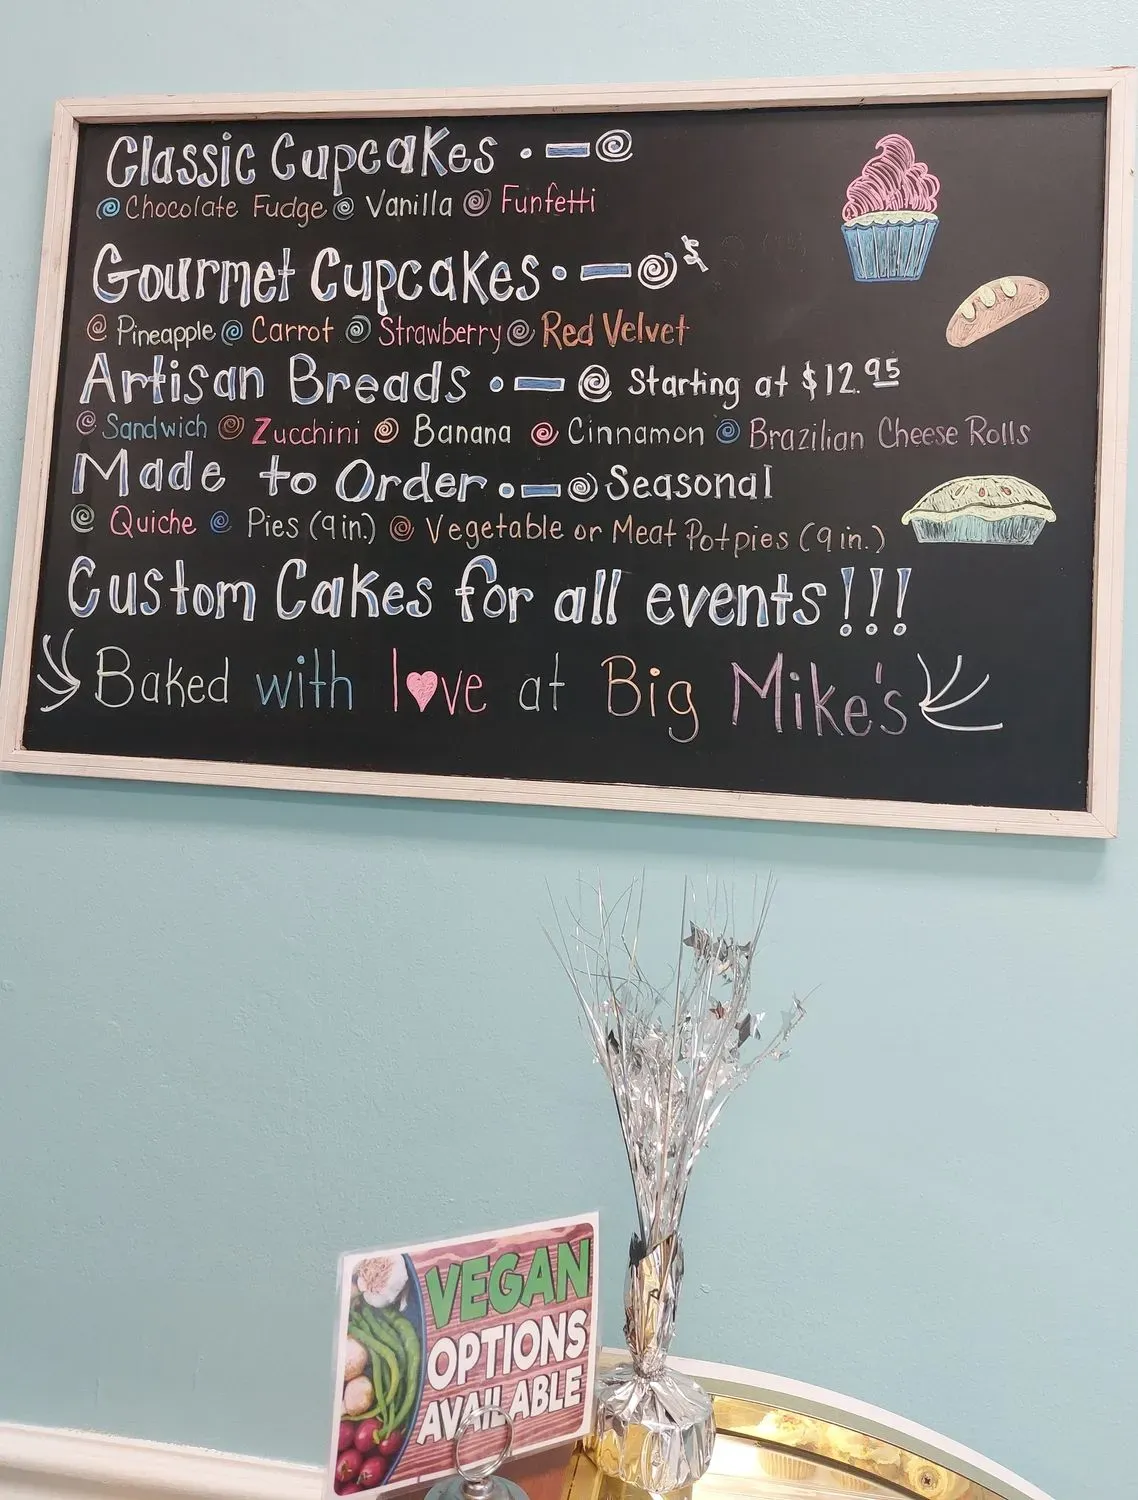 Classic Cupcakes
Chocolate Fudge Vanilla Funfetti
Gourmet Cupcakes $
Pineapple Carrot Strawberry Red Velvet
Artisan Breads Starting at $12.95
Sandwich Zucchini Banana Cinnamon Brazilian Cheese Rolls
Made to Order Seasonal
Quiche Pies (9in.) Vegetable or Meat Potpies (9in.)
Custom Cakes for all events!!!
Baked with love at Big Mike's
VEGAN
OPTIONS
AVAILABLE